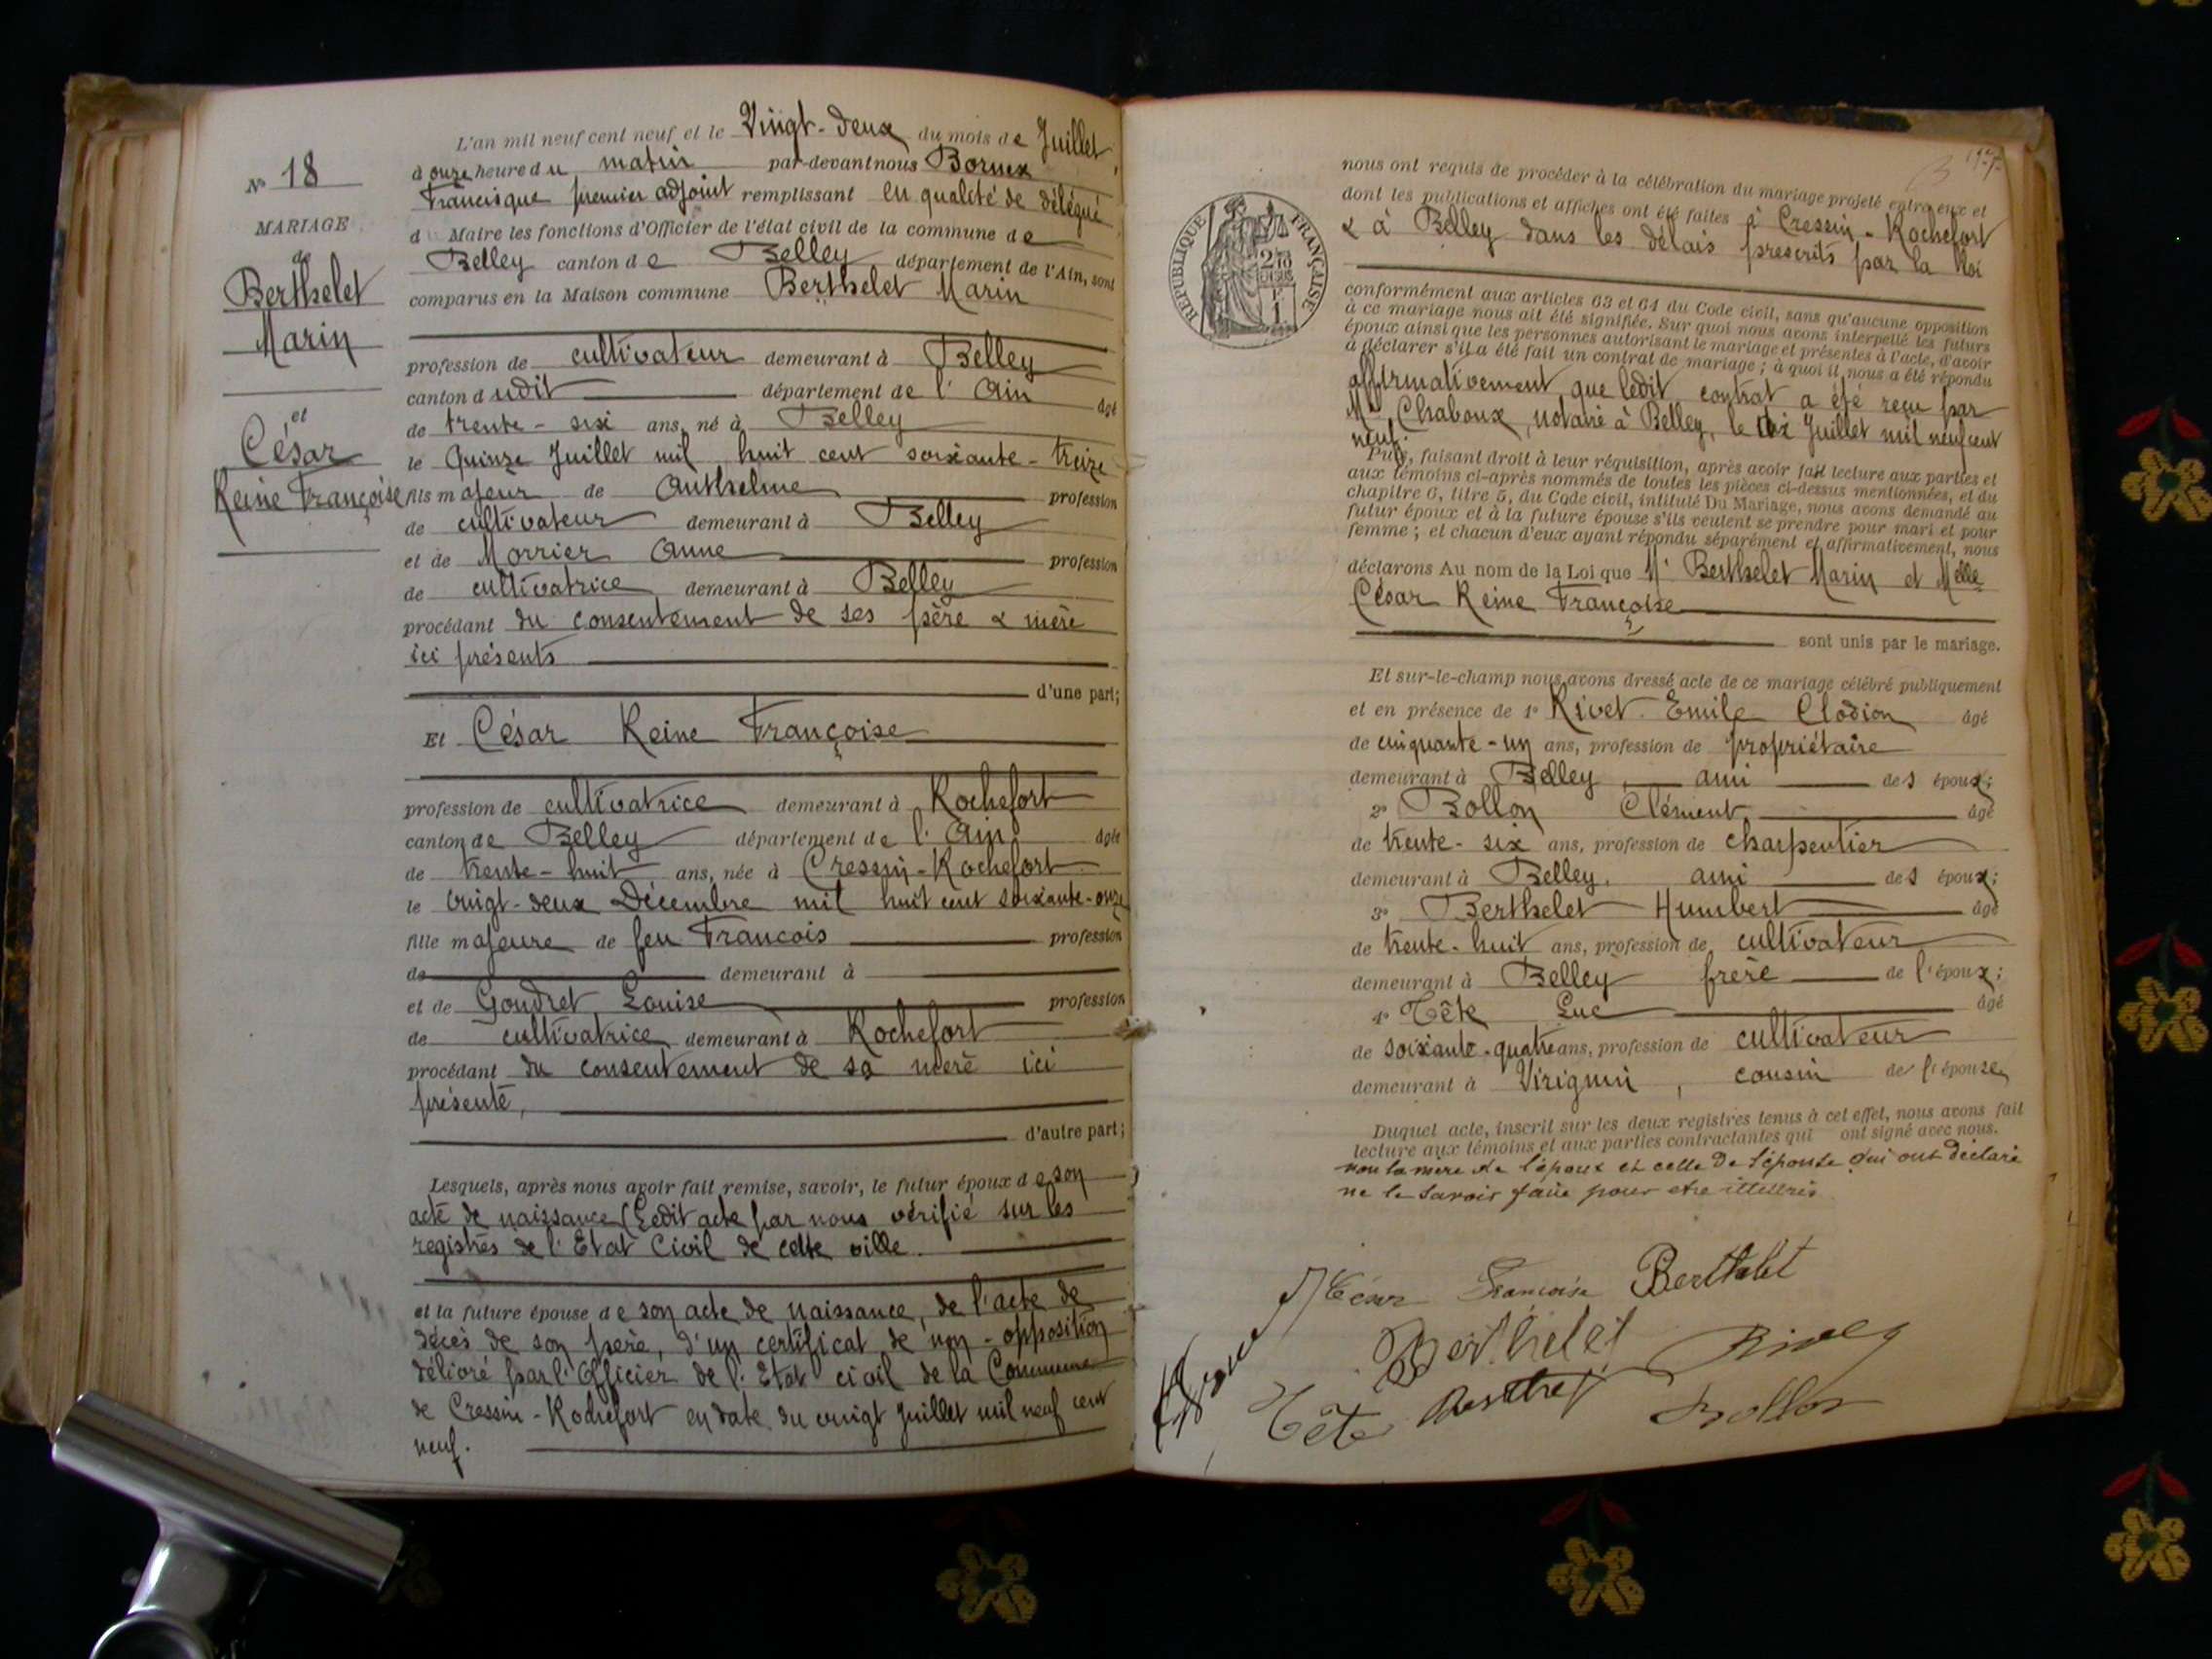 L'an mil neuf cent neuf et le Vingt-deux du mois de Juillet
à onze heure du matin par-devant nous Bornex
Francisque premier adjoint remplissant en qualité de délégué
d Maire les fonctions d'Officier de l'état civil de la commune de
Belley canton de Belley département de l'Ain, sont
comparus en la Maison commune Berthelet Marin
profession de cultivateur demeurant à Belley
canton dudit département de l'Ain âgé
de trente-six ans, né à Belley
le Quinze Juillet mil huit cent soixante-treize
fils majeur de Anthelme profession
de cultivateur demeurant à Belley
et de Morrier Anne profession
de cultivatrice demeurant à Belley
procédant du consentement de ses père & mère
ici présents
d'une part;
Et César Reine Françoise
profession de cultivatrice demeurant à Rochefort
canton de Belley département de l'Ain âgée
de trente-huit ans, née à Cressin-Rochefort
le vingt-deux Décembre mil huit cent soixante-onze
fille majeure de feu François profession
de demeurant à
et de Goudret Louise profession
de cultivatrice demeurant à Rochefort
procédant du consentement de sa mère ici
présente,
d'autre part;
Lesquels, après nous avoir fait remise, savoir, le futur époux de son
acte de naissance (Ledit acte par nous vérifié sur les
registres de l'Etat Civil de cette ville.
et la future épouse de son acte de naissance, de l'acte de
décès de son père, d'un certificat de non-opposition
délivré par l'Officier de l'Etat civil de la Commune
de Cressin-Rochefort en date du vingt Juillet mil neuf cent
neuf.
N° 18
MARIAGE
de
Berthelet
Marin
et
César
Reine Françoise
nous ont requis de procéder à la célébration du mariage projeté entre eux et
dont les publications et affiches ont été faites à Cressin-Rochefort
& à Belley dans les délais prescrits par la loi
RÉPUBLIQUE FRANÇAISE
conformément aux articles 63 et 64 du Code civil, sans qu'aucune opposition
à ce mariage nous ait été signifiée. Sur quoi nous avons interpellé les futurs
époux ainsi que les personnes autorisant le mariage et présentes à l'acte, d'avoir
à déclarer s'il a été fait un contrat de mariage; à quoi il nous a été répondu
affirmativement que ledit contrat a été reçu par
Me Chaboux, notaire à Belley, le Juillet mil neuf cent
neuf.
Puis, faisant droit à leur réquisition, après avoir fait lecture aux parties et
aux témoins ci-après nommés de toutes les pièces ci-dessus mentionnées, et du
chapitre 6, titre 5, du Code civil, intitulé Du Mariage, nous avons demandé au
futur époux et à la future épouse s'ils veulent se prendre pour mari et pour
femme; et chacun d'eux ayant répondu séparément et affirmativement, nous
déclarons Au nom de la Loi que Mr Berthelet Marin et Melle
César Reine Françoise
sont unis par le mariage.
Et sur-le-champ nous avons dressé acte de ce mariage célébré publiquement
et en présence de 1° Rivet Emile Clodion âgé
de cinquante-un ans, profession de propriétaire
demeurant à Belley ami des époux;
2° Bollon Clément âgé
de trente-six ans, profession de charpentier
demeurant à Belley, ami des époux;
3° Berthelet Humbert âgé
de trente-huit ans, profession de cultivateur
demeurant à Belley frère de l'époux;
4° Tête Luc âgé
de soixante-quatre ans, profession de cultivateur
demeurant à Virignin, cousin de l'épouse,
Duquel acte, inscrit sur les deux registres tenus à cet effet, nous avons fait
lecture aux témoins et aux parties contractantes qui ont signé avec nous.
non la mère de l'époux et celle de l'épouse qui ont déclaré
ne le savoir faire pour etre illettrés
César Françoise Berthelet
Berthelet
Tête Bollon